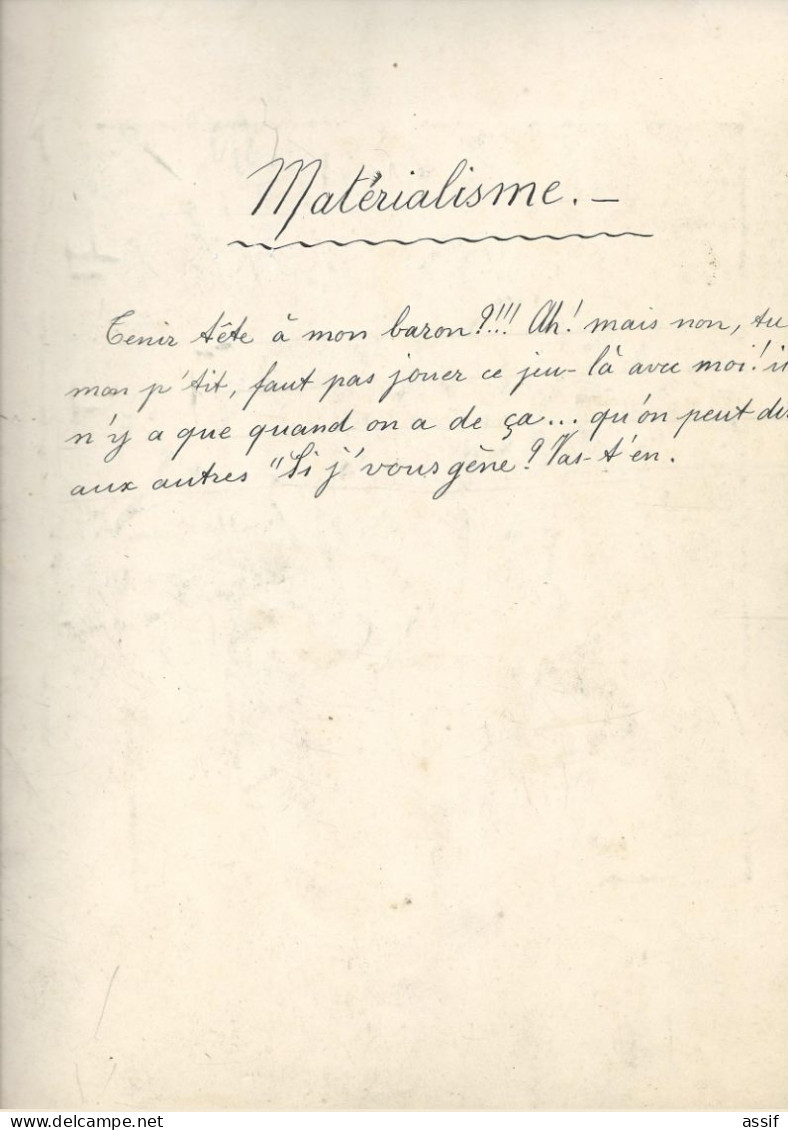 Matérialisme. —
Tenir tête à mon baron?!!! Ah! mais non, tu
mon p'tit, faut pas jouer ce jeu-là avec moi! i
n'y a que quand on a de ça... qu'on peut di
aux autres "Si j'vous gêne? Vas-t'en.
www.delcampe.net
assif